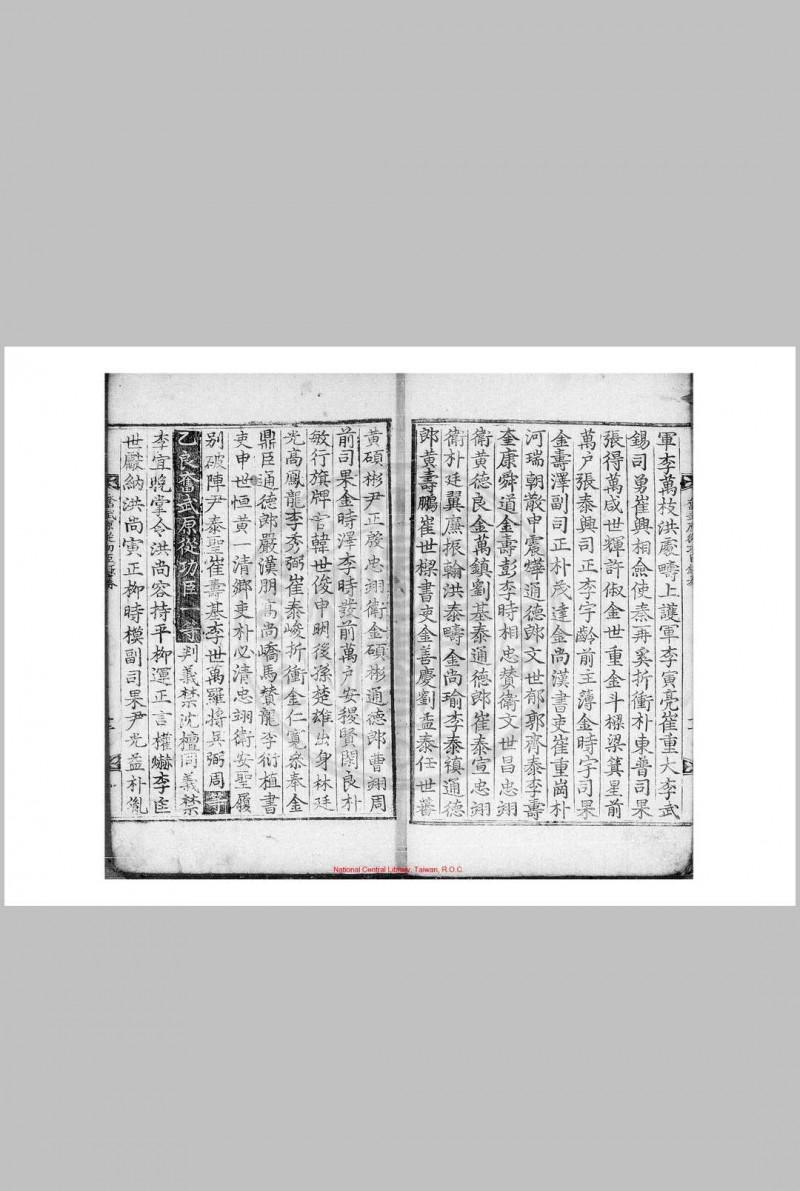 軍李萬枝洪處疇上護軍李寅亮崔重大李武
錫司勇崔興相僉使秦再奚折衝朴東普司果
張得萬咸世輝許俶金世重金斗樑梁箕星前
萬戶張泰興司正李宇齡前主薄金時宇司果
金壽澤副司正朴茂達金尚漢書吏崔重崗朴
河瑞朝散申震燁通德郎文世郁郭齊泰李壽
奎康舜道金壽彭李時相忠贊衛文世昌忠翊
衛黃德良金萬鎮劉基泰通德郎崔泰宣忠翊
衛朴廷翼龐振翰洪泰疇金尚瑜李泰禛通德
郎黃壽鵬崔世樑書吏金善慶劉孟泰任世蕃
黃碩彬尹正殷忠翊衛金碩彬通德郎曹翊周
前司果金時澤李時發前萬戶安稷賢閑良朴
敏行旗牌官韓世俊申明後孫楚雄出身林廷
光高鳳龍李秀弼崔泰峻折衝金仁寬參奉金
鼎臣通德郎嚴漢朋高尚嶠馬贊龍李衍植書
吏申世恒黃一清鄉吏朴必清忠翊衛安聖履
別破陣尹泰聖崔壽基李世萬羅將吳弼周等
乙良奮武原從功臣一等判義禁沈檀同義禁
李宜晚掌令洪尚容持平柳運正言權爀李匡
世嚴納洪尚寅正柳時模副司果尹光益朴胤
National Central Library, Taiwan, R.O.C.